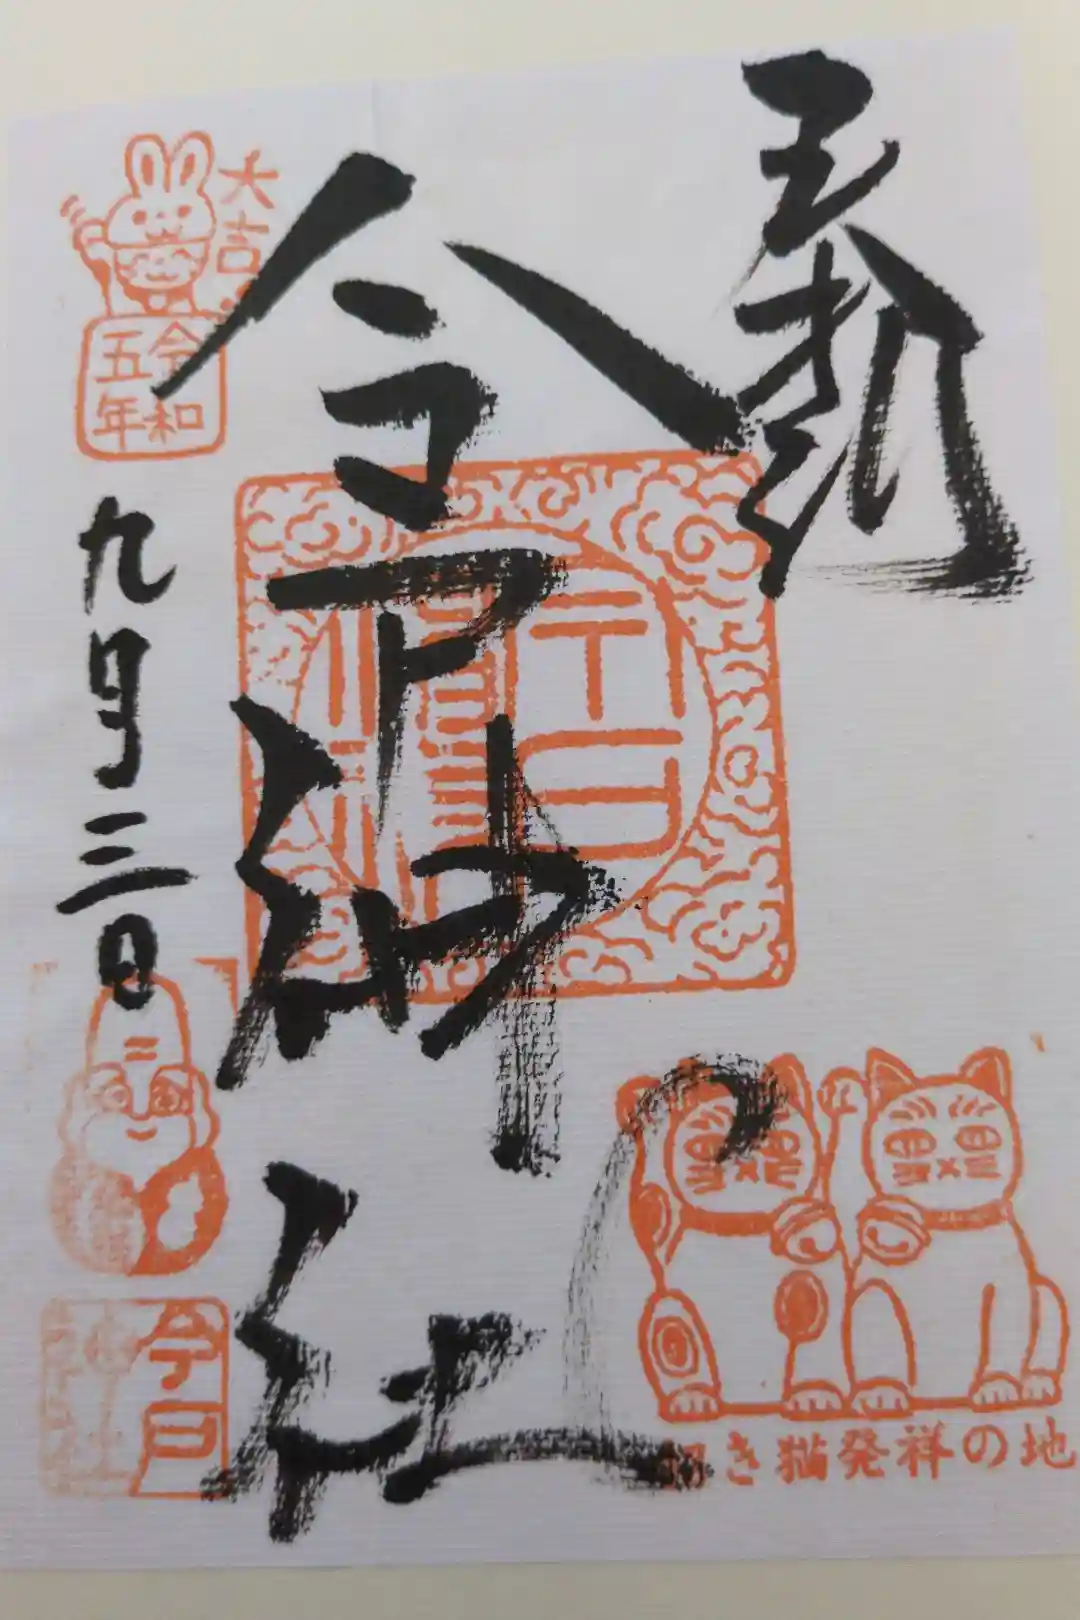 奉拝
今戸神社
大吉
令和
五年
九月三〇日
今戸
招き猫発祥の地